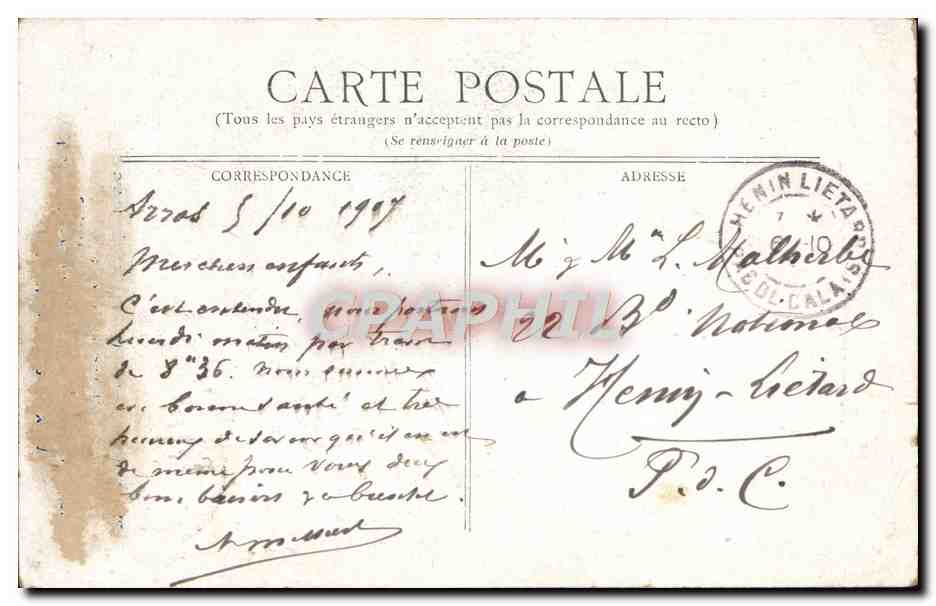 CARTE POSTALE
(Tous les pays étrangers n'acceptent pas la correspondance au recto)
(Se renseigner à la poste)
CORRESPONDANCE
Arras 5/10 1907
Mes chers enfants,
C'est entendu, nous partirons
Lundi matin par train
de 8h36. Nous sommes
en bonne santé et très
heureux de savoir qu'il en est
de même pour vous deux
bons baisers
ADRESSE
Mr & Mme L. Malherbe
22 Bd National
a Henin-Liétard
P. d. C.
HENIN LIETARD
PAS DE CALAIS
CPAPHIL